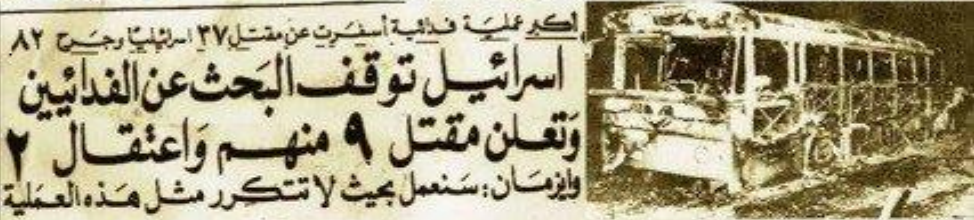 أكبر عملية فدائية أسفرت عن مقتل ٣٧ اسرائيليا وجرح ٨٢
اسرائيل توقف البحث عن الفدائيين
وتعلن مقتل ٩ منهم واعتقال ٢
وايزمان: سنعمل بحيث لا تتكرر مثل هذه العملية